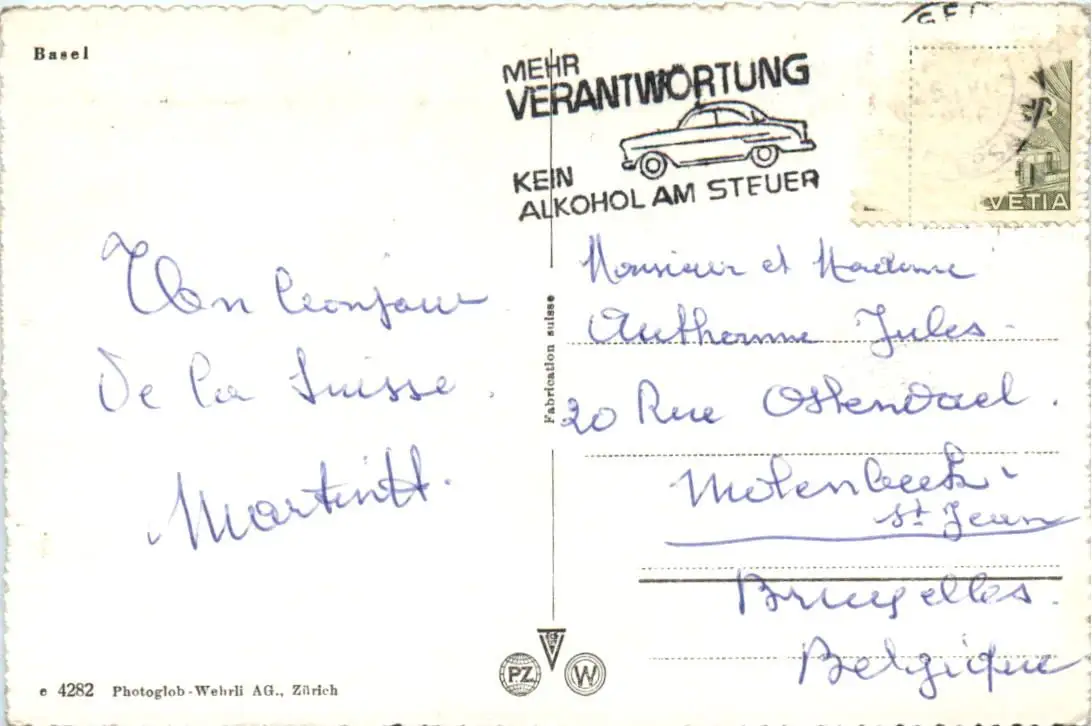 Basel
MEHR
VERANTWORTUNG
KEIN
ALKOHOL AM STEUER
HELVETIA
Un bonjour
De la Suisse.
Martinitt.
Monsieur et Madame
Authomme Jules
20 Rue Ostendael.
Molenbeek-
St Jean
Bruxelles.
Belgique
Fabrication suisse
PZ
W
e 4282 Photoglob-Wehrli AG., Zürich